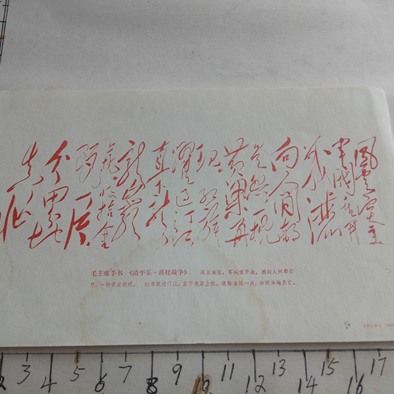 风云突变
军阀重开
战洒
向人间都
是怨一枕
黄粱再
现红旗
跃过汀江
直下
龙岩上
杭收拾金
瓯一片
分田分地
真忙
毛主席手书《清平乐·蒋桂战争》 风云突变，军阀重开战。洒向人间都是
怨，一枕黄粱再现。 红旗跃过汀江，直下龙岩上杭。收拾金瓯一片，分田分地真忙。
2 3 4 5 6 7 8 9 10 11 12 13 14 15 16 17